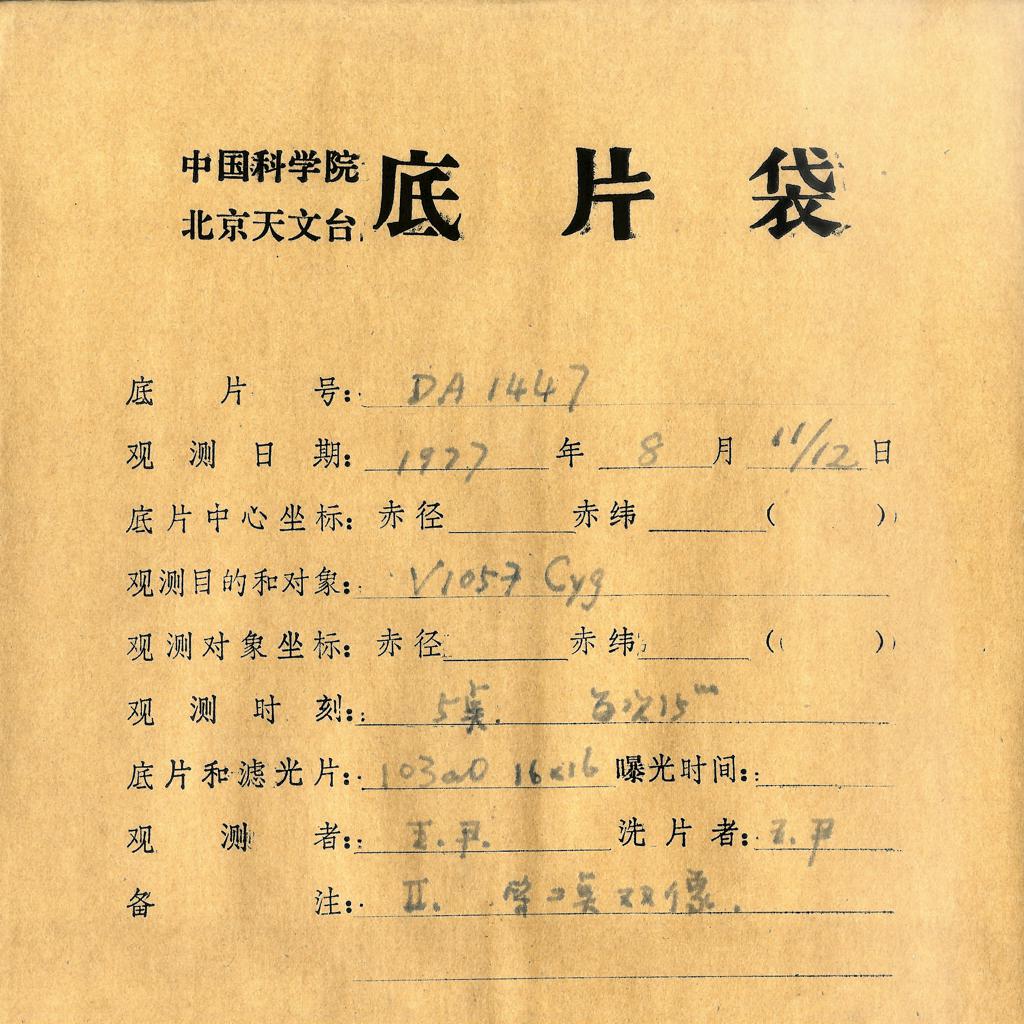 中国科学院
北京天文台
底片袋
底片号: DA 1447
观测日期: 1977 年 8 月 11/12 日
底片中心坐标: 赤径 赤纬 ( )
观测目的和对象: V1057 Cyg
观测对象坐标: 赤径 赤纬 ( )
观测时刻: 5点. 15ᵐ
底片和滤光片: 103aO 16×16 曝光时间:
观测者: 王.尹. 洗片者: 王.尹
备注: II. 第二点双像.